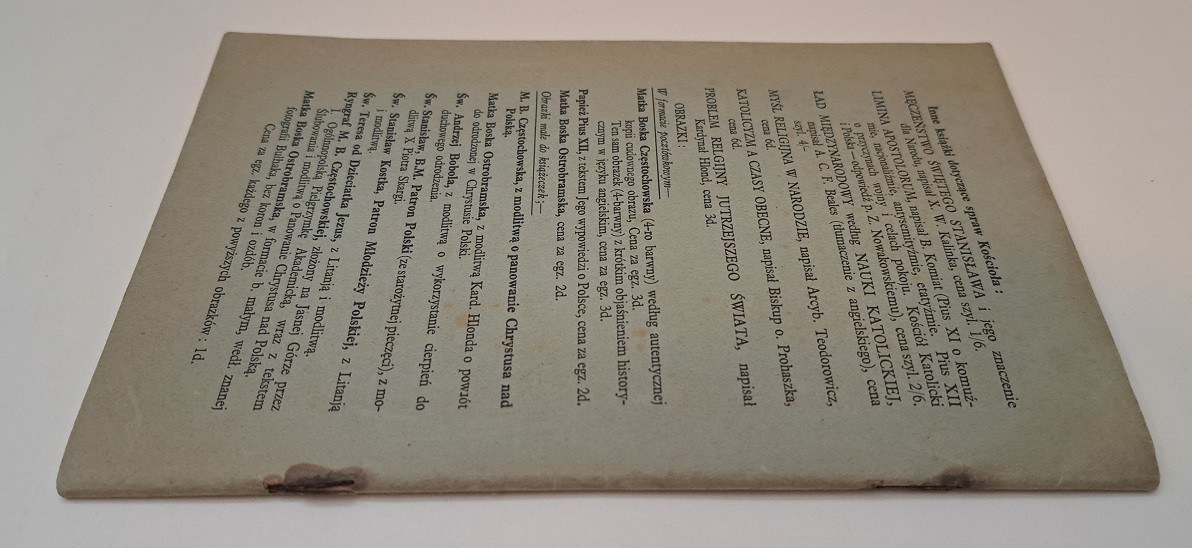 Inne książki dotyczące spraw Kościoła :
MĘCZEŃSTWO ŚWIĘTEGO STANISŁAWA i jego znaczenie
dla Narodu, napisał X. W. Kalinka, cena szyl. 1/6.
LIMINA APOSTOLORUM, napisał B. Komiat (Pius XI o komuź-
mie, nacjonaliźmie, antysemityźmie, etatyźmie. Pius XII
o przyczynach wojny i celach pokoju. Kościół Katolicki
i Polska—odpowiedź p. Z. Nowakowskiemu), cena szyl. 2/6.
ŁAD MIĘDZYNARODOWY według NAUKI KATOLICKIEJ,
napisał A. C. F. Beales (tłumaczenie z angielskiego), cena
szyl. 4/-
MYŚL RELIGIJNA W NARODZIE, napisał Arcyb. Teodorowicz,
cena 6d.
KATOLICYZM A CZASY OBECNE, napisał Biskup o. Prohaszka,
cena 6d.
PROBLEM RELIGIJNY JUTRZEJSZEGO ŚWIATA, napisał
Kardynał Hlond, cena 3d.
OBRAZKI :
W formacie pocztówkowym—
Matka Boska Częstochowska (4-ro barwny) według autentycznej
kopii cudownego obrazu, Cena za egz. 3d.
Ten sam obrazek (4-barwny) z krótkim objaśnieniem history-
cznym w języku angielskim, cena za egz. 3d.
Papież Pius XII, z tekstem Jego wypowiedzi o Polsce, cena za egz. 2d.
Matka Boska Ostrobramska, cena za egz. 2d.
Obrazki małe do książeczek :—
M. B. Częstochowska, z modlitwą o panowanie Chrystusa nad
Polską.
Matka Boska Ostrobramska, z modlitwą Kard Hlonda o powrót
do odrodzonej w Chrystusie Polski.
Św. Andrzej Bobola, z modlitwą o wykorzystanie cierpień do
duchowego odrodzenia.
Św. Stanisław, B.M. Patron Polski (ze starożytnej pieczęci), z mo-
dlitwą X Piotra Skargi.
Św. Stanisław Kostka, Patron Młodzieży Polskiej, z Litanją
i modlitwą.
Św. Teresa od Dzieciatka Jezus, z Litanją i modlitwą.
Ryngraf M. B. Częstochowskiej, złożony na Jasnej Górze przez
I. Ogólnopolską Pielgrzymkę Akademicką, wraz z tekstem
Ślubowania i modlitwą o Panowanie Chrystusa nad Polską.
Matka Boska Ostrobramska, w formacie b. małym, wedł. znanej
fotografii Bułhaka, bez koron i ozdób.
Cena za egz. każdego z powyższych obrazków : 1d.